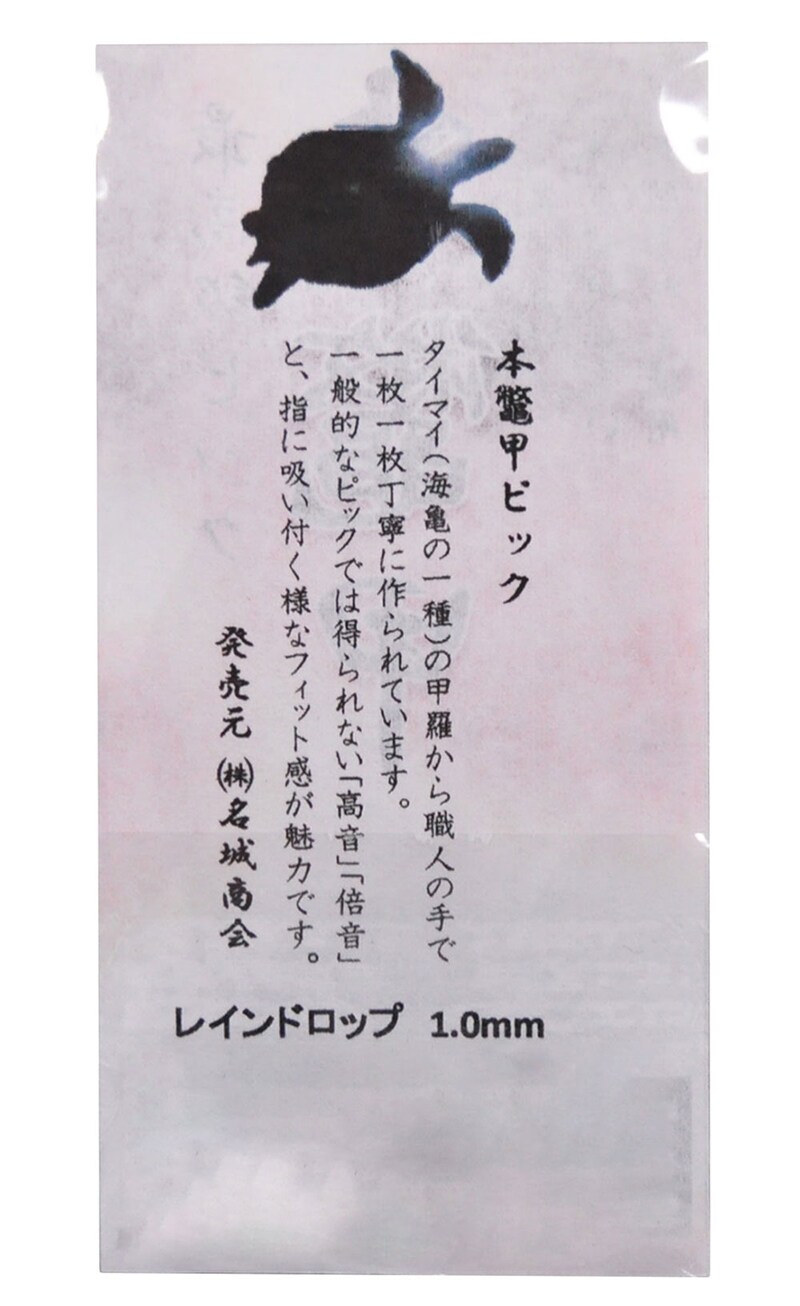 本鼈甲ピック
タイマイ(海亀の一種)の甲羅から職人の手で
一枚一枚丁寧に作られています。
一般的なピックでは得られない「高音」「倍音」
と、指に吸い付く様なフィット感が魅力です。
発売元 ㈱名城商会
レインドロップ 1.0mm